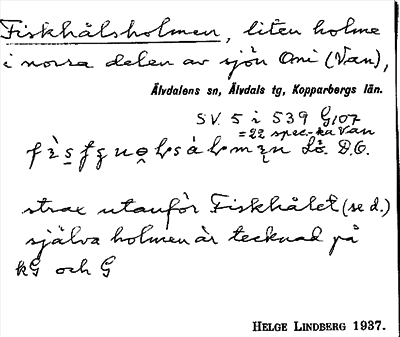 Fiskhålsholmen, liten holme
i norra delen av sjön Omi (Van),
Älvdalens sn, Älvdals tg, Kopparbergs län.
SV. 5 i 539 G107
= 22 spec-ka Van
Lö. D.O.
strax utanför Fiskhålet (se d.)
själva holmen är tecknad på
kG och G
HELGE LINDBERG 1937.